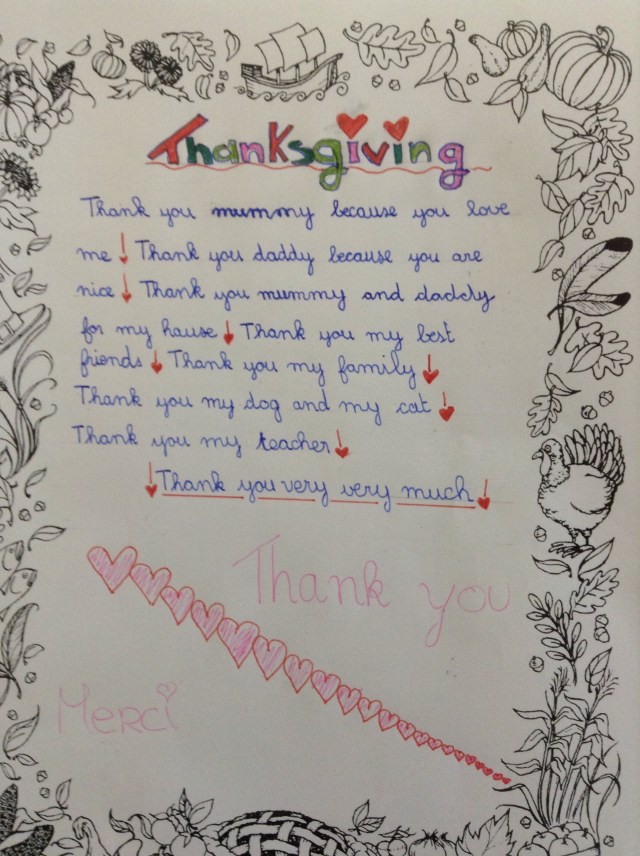 Thanksgiving
Thank you mummy because you love
me! Thank you daddy because you are
nice! Thank you mummy and daddy
for my hause! Thank you my best
friends! Thank you my family!
Thank you my dog and my cat!
Thank you my teacher!
!Thank you very very much!
Thank you
Merci